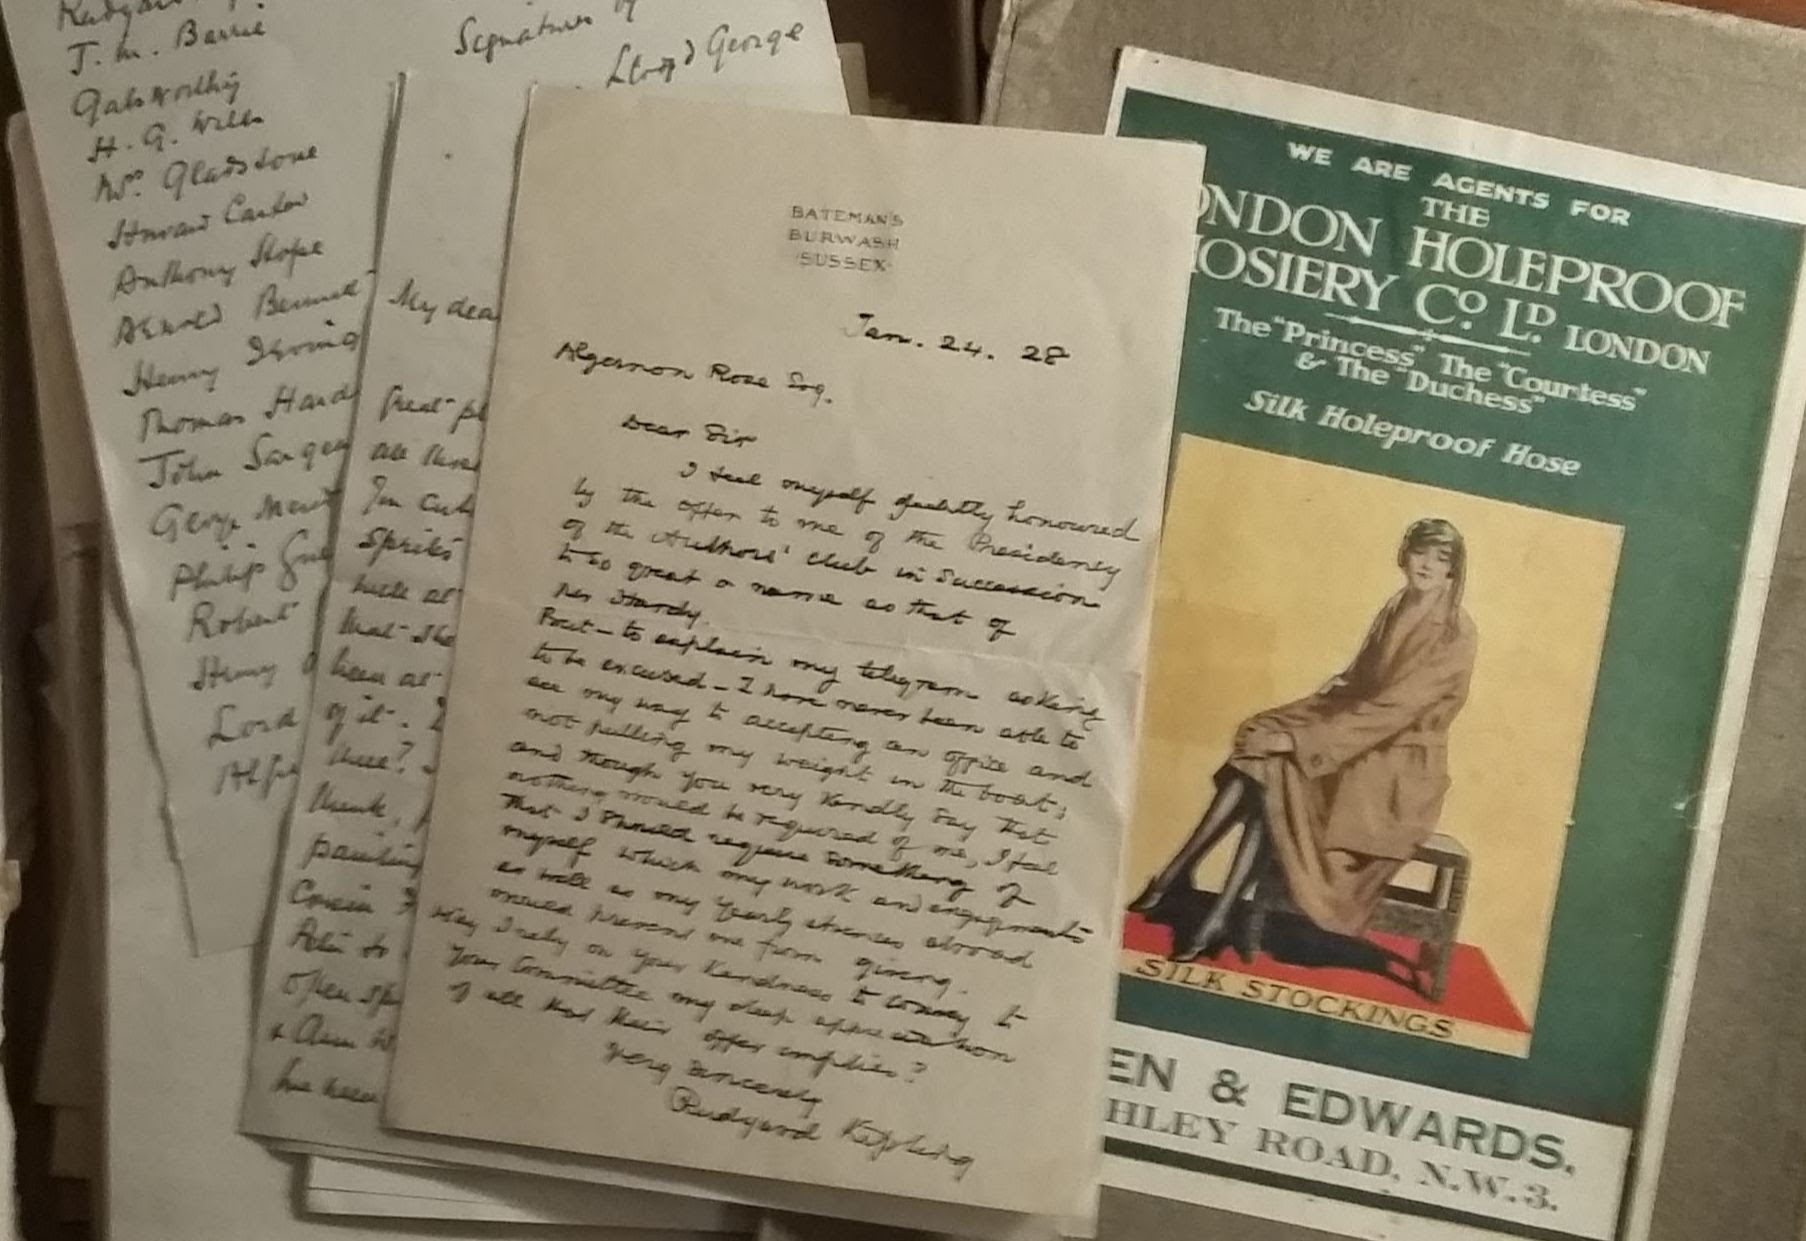 J. M. Barrie
Galsworthy
H. G. Wells
Wm. Gladstone
Howard Carter
Anthony Hope
Arnold Bennett
Henry Irving
Thomas Hard
John Sarge
George Mered
Philip
Robert
Henry
Lord
Alf
Signatures by
Lloyd George
My dea
Great
all
Spirits
luck at
that she
been at
of it.
here?
think,
painting
Cousin
open
he
BATEMAN'S
BURWASH
SUSSEX
Jan. 24. 28
Algernon Rose Esq.
Dear Sir
I feel myself greatly honoured
by the offer to me of the Presidency
of the Authors' Club in succession
to so great a name as that of
Mr Hardy.
But – to explain my telegram asking
to be excused – I have never been able to
see my way to accepting an office and
not pulling my weight in the boat;
and though you very kindly say that
nothing would be required of me, I feel
that I should require something of
myself which my work and engagements
as well as my yearly absences abroad
would prevent me from giving.
May I rely on your kindness to convey to
your Committee my deep appreciation
of all that their offer implies?
Very sincerely
Rudyard Kipling
WE ARE AGENTS FOR
THE
ONDON HOLEPROOF
HOSIERY Co. LD. LONDON
The "Princess" The "Courtess"
& The "Duchess"
Silk Holeproof Hose
SILK STOCKINGS
EN & EDWARDS,
HLEY ROAD, N.W.3.